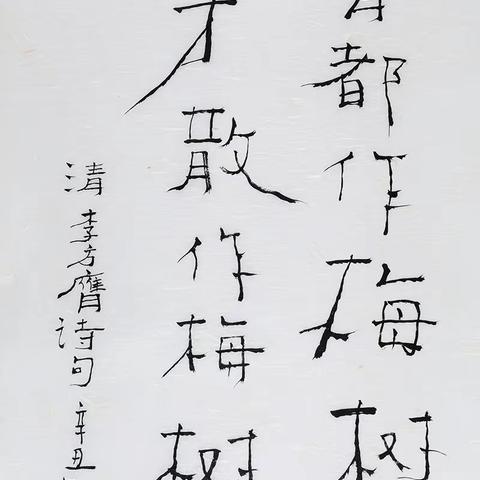 都作梅树
才散作梅树
清李方膺诗句辛丑